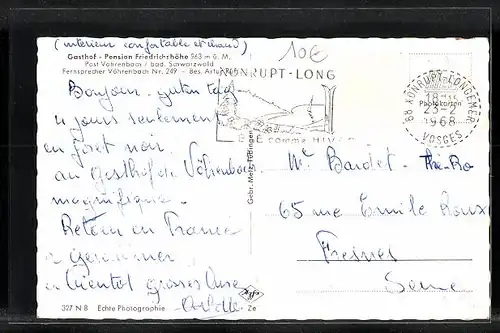 (intérieur confortable et chaud)
Gasthof - Pension Friedrichshöhe 963 m ü. M.
Post Vöhrenbach / bad. Schwarzwald
Fernsprecher Vöhrenbach Nr. 249 - Bes. Artur
10€
Bonjour - guten tag
4 jours seulement
en forêt noir
au gasthof Vöhrenbach
magnifique -
Retour en France
à
bientôt grosses bises
Arlette
327 N 8 Echte Photographie Ze
Gebr. Metz, Tübingen
XONRUPT-LONG
ÉTÉ comme HIVER
68 XONRUPT-LONGEMER
18H
Photokarten
23-2
1968
VOSGES
Mr Bardet-
65 rue Emile Roux
Fresnes
Seine